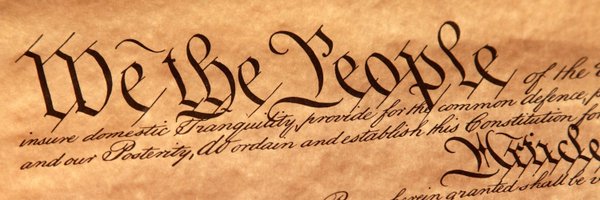 We the People of the
insure domestic Tranquility, provide for the common defence,
and our Posterity, do ordain and establish this Constitution for
Article
herein granted shall be